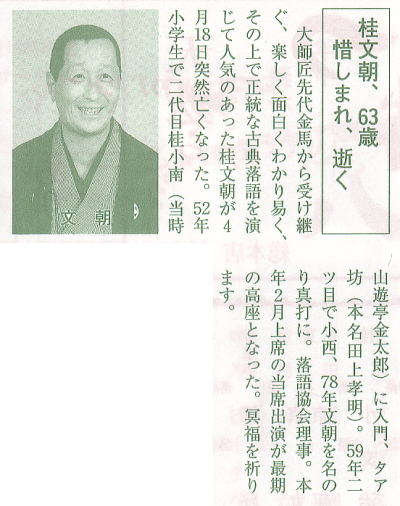 桂文朝、63歳
惜しまれ、逝く
大師匠先代金馬から受け継
ぐ、楽しく面白くわかり易く、
その上で正統な古典落語を演
じて人気のあった桂文朝が4
月18日突然亡くなった。52年
小学生で二代目桂小南（当時
文朝
山遊亭金太郎）に入門、タア
坊（本名田上孝明）。59年二
ツ目で小西、78年文朝を名の
り真打に。落語協会理事。本
年2月上席の当席出演が最期
の高座となった。冥福を祈り
ます。